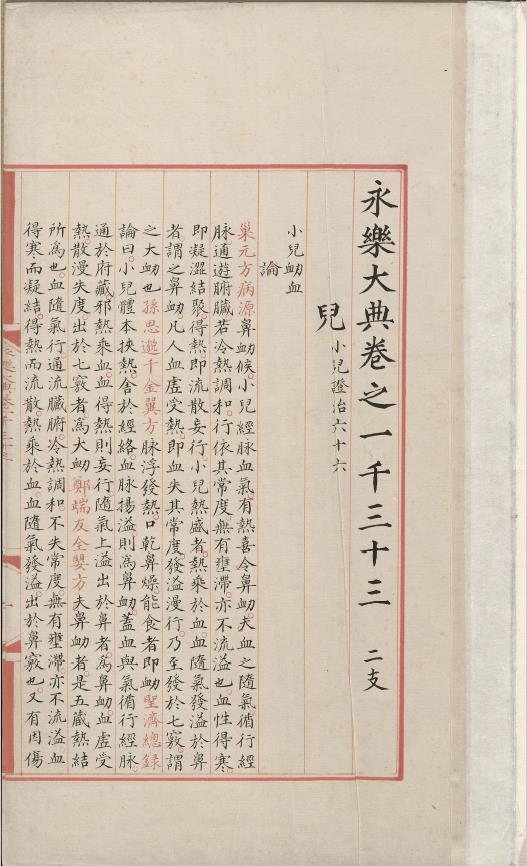 永樂大典卷之一千三十三 二支
兒 小兒證治六十六
小兒衂血
論
巢元方病源鼻衂候小兒經脉血氣有熱喜令鼻衂夫血之隨氣循行經
脉通遊腑臟若冷熱調和行依其常度無有壅滯亦不流溢也血性得寒
即凝澀結聚得熱即流散妄行小兒熱盛者熱乘於血血隨氣發溢於鼻
者謂之鼻衂凡人血虛受熱即血失其常度發溢漫行乃至發於七竅謂
之大衂也孫思邈千金翼方脉浮發熱口乾鼻燥能食者即衂聖濟總錄
論曰小兒體本挾熱舍於經絡血脉揚溢則爲鼻衂蓋血與氣循行經脉
通於府藏邪熱乘血血得熱則妄行隨氣上溢出於鼻者爲鼻衂血虛受
熱散漫失度出於七竅者爲大衂鄭端友全嬰方夫鼻衂者是五藏熱結
所爲也血隨氣行通流臟腑冷熱調和不失常度無有壅滯亦不流溢血
得寒而凝結得熱而流散熱乘於血血隨氣發溢出於鼻竅也又有因傷